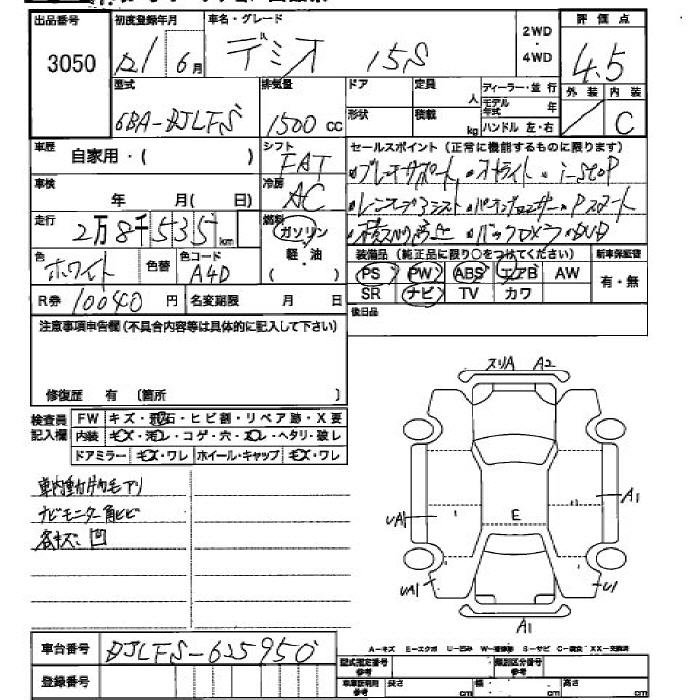 出品番号 初度登録年月 車名・グレード 2WD・4WD 評価点
3050 21年 6月 デミオ 15S 4.5
型式 排気量 ドア 定員 人 ディーラー・並行 外装 内装
6BA-DJLFS 1500 cc 形状 積載 kg モデル年式 年 ハンドル 左・右 C
車歴 自家用・( ) シフト FAT セールスポイント(正常に機能するものに限ります)
車検 年 月( 日) 冷房 AC ・ブレーキサポート ・オートライト ・i-stop
走行 2万8千535km 燃料 ガソリン・軽・油 ( )
・バックカメラ ・DVD
色 ホワイト 色替 色コード A4D 装備品(純正品に限り○をつけてください) 新車保証書
PS PW ABS エアB AW 有・無
R券 10040円 名変期限 月 日 SR ナビ TV カワ
注意事項申告欄(不具合内容等は具体的に記入して下さい) 後日品
修復歴 有 〔箇所 〕
スリA A2
検査員記入欄 FW キズ・飛石・ヒビ割・リペア跡・X要
内装 キズ・汚レ・コゲ・穴・スレ・ヘタリ・破レ
ドアミラー キズ・ワレ ホイール・キャップ キズ・ワレ
車内動物毛アリ
ナビモニター角ヒビ
各キズ凹
A1
UA1 E
UA1 U1
A1
車台番号 DJLFS-625950
A-キズ E-エクボ U-凹み W-補修跡 S-サビ C-腐食 XX-交換済
登録番号 型式指定番号 類別区分番号
車庫証明用参考 長さ cm 幅 cm 高さ cm